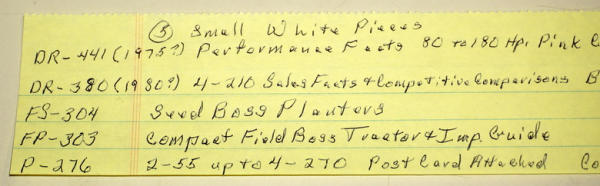 ⑤ Small White Pieces
DR-441 (1975?) Performance Facts 80 to 180 Hp, Pink C
DR-380 (1980?) 4-210 Sales Facts & Competitive Comparisons B
FS-304 Seed Boss Planters
FP-303 Compact Field Boss Tractor & Imp. Guide
P-276 2-55 up to 4-270 Post Card Attached Co